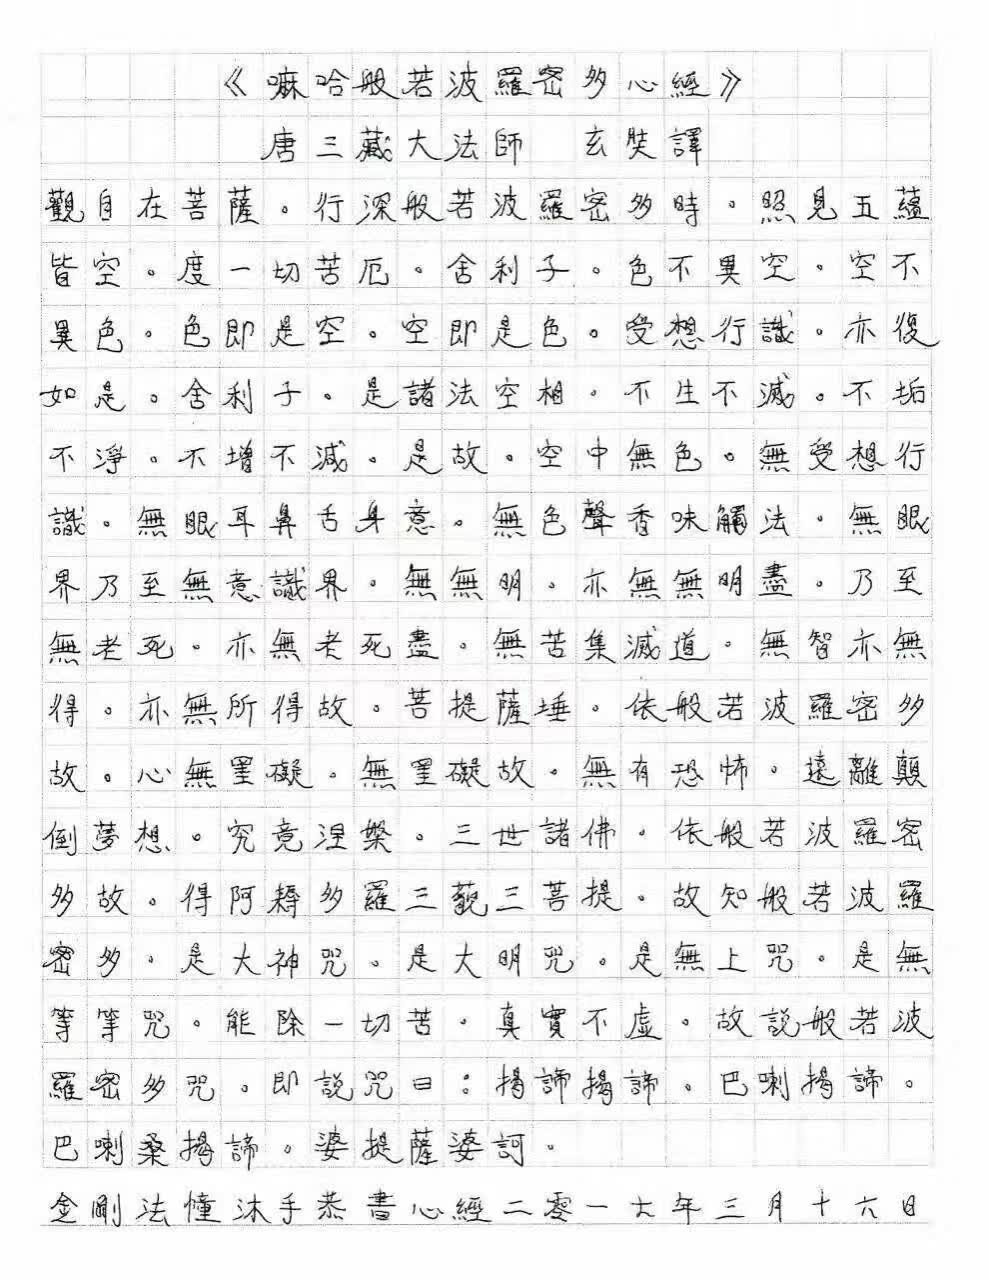 《嘛哈般若波羅密多心經》
唐三藏大法師　玄奘譯
觀自在菩薩。行深般若波羅密多時。照見五蘊
皆空。度一切苦厄。舍利子。色不異空。空不
異色。色即是空。空即是色。受想行識。亦復
如是。舍利子。是諸法空相。不生不滅。不垢
不淨。不增不減。是故。空中無色。無受想行
識。無眼耳鼻舌身意。無色聲香味觸法。無眼
界乃至無意識界。無無明。亦無無明盡。乃至
無老死。亦無老死盡。無苦集滅道。無智亦無
得。亦無所得故。菩提薩埵。依般若波羅密多
故。心無罣礙。無罣礙故。無有恐怖。遠離顛
倒夢想。究竟涅槃。三世諸佛。依般若波羅密
多故。得阿耨多羅三藐三菩提。故知般若波羅
密多。是大神咒。是大明咒。是無上咒。是無
等等咒。能除一切苦。真實不虛。故說般若波
羅密多咒。即說咒曰：揭諦揭諦。巴喇揭諦。
巴喇桑揭諦。婆提薩婆訶。
金剛法憧沐手恭書心經二零一六年三月十六日